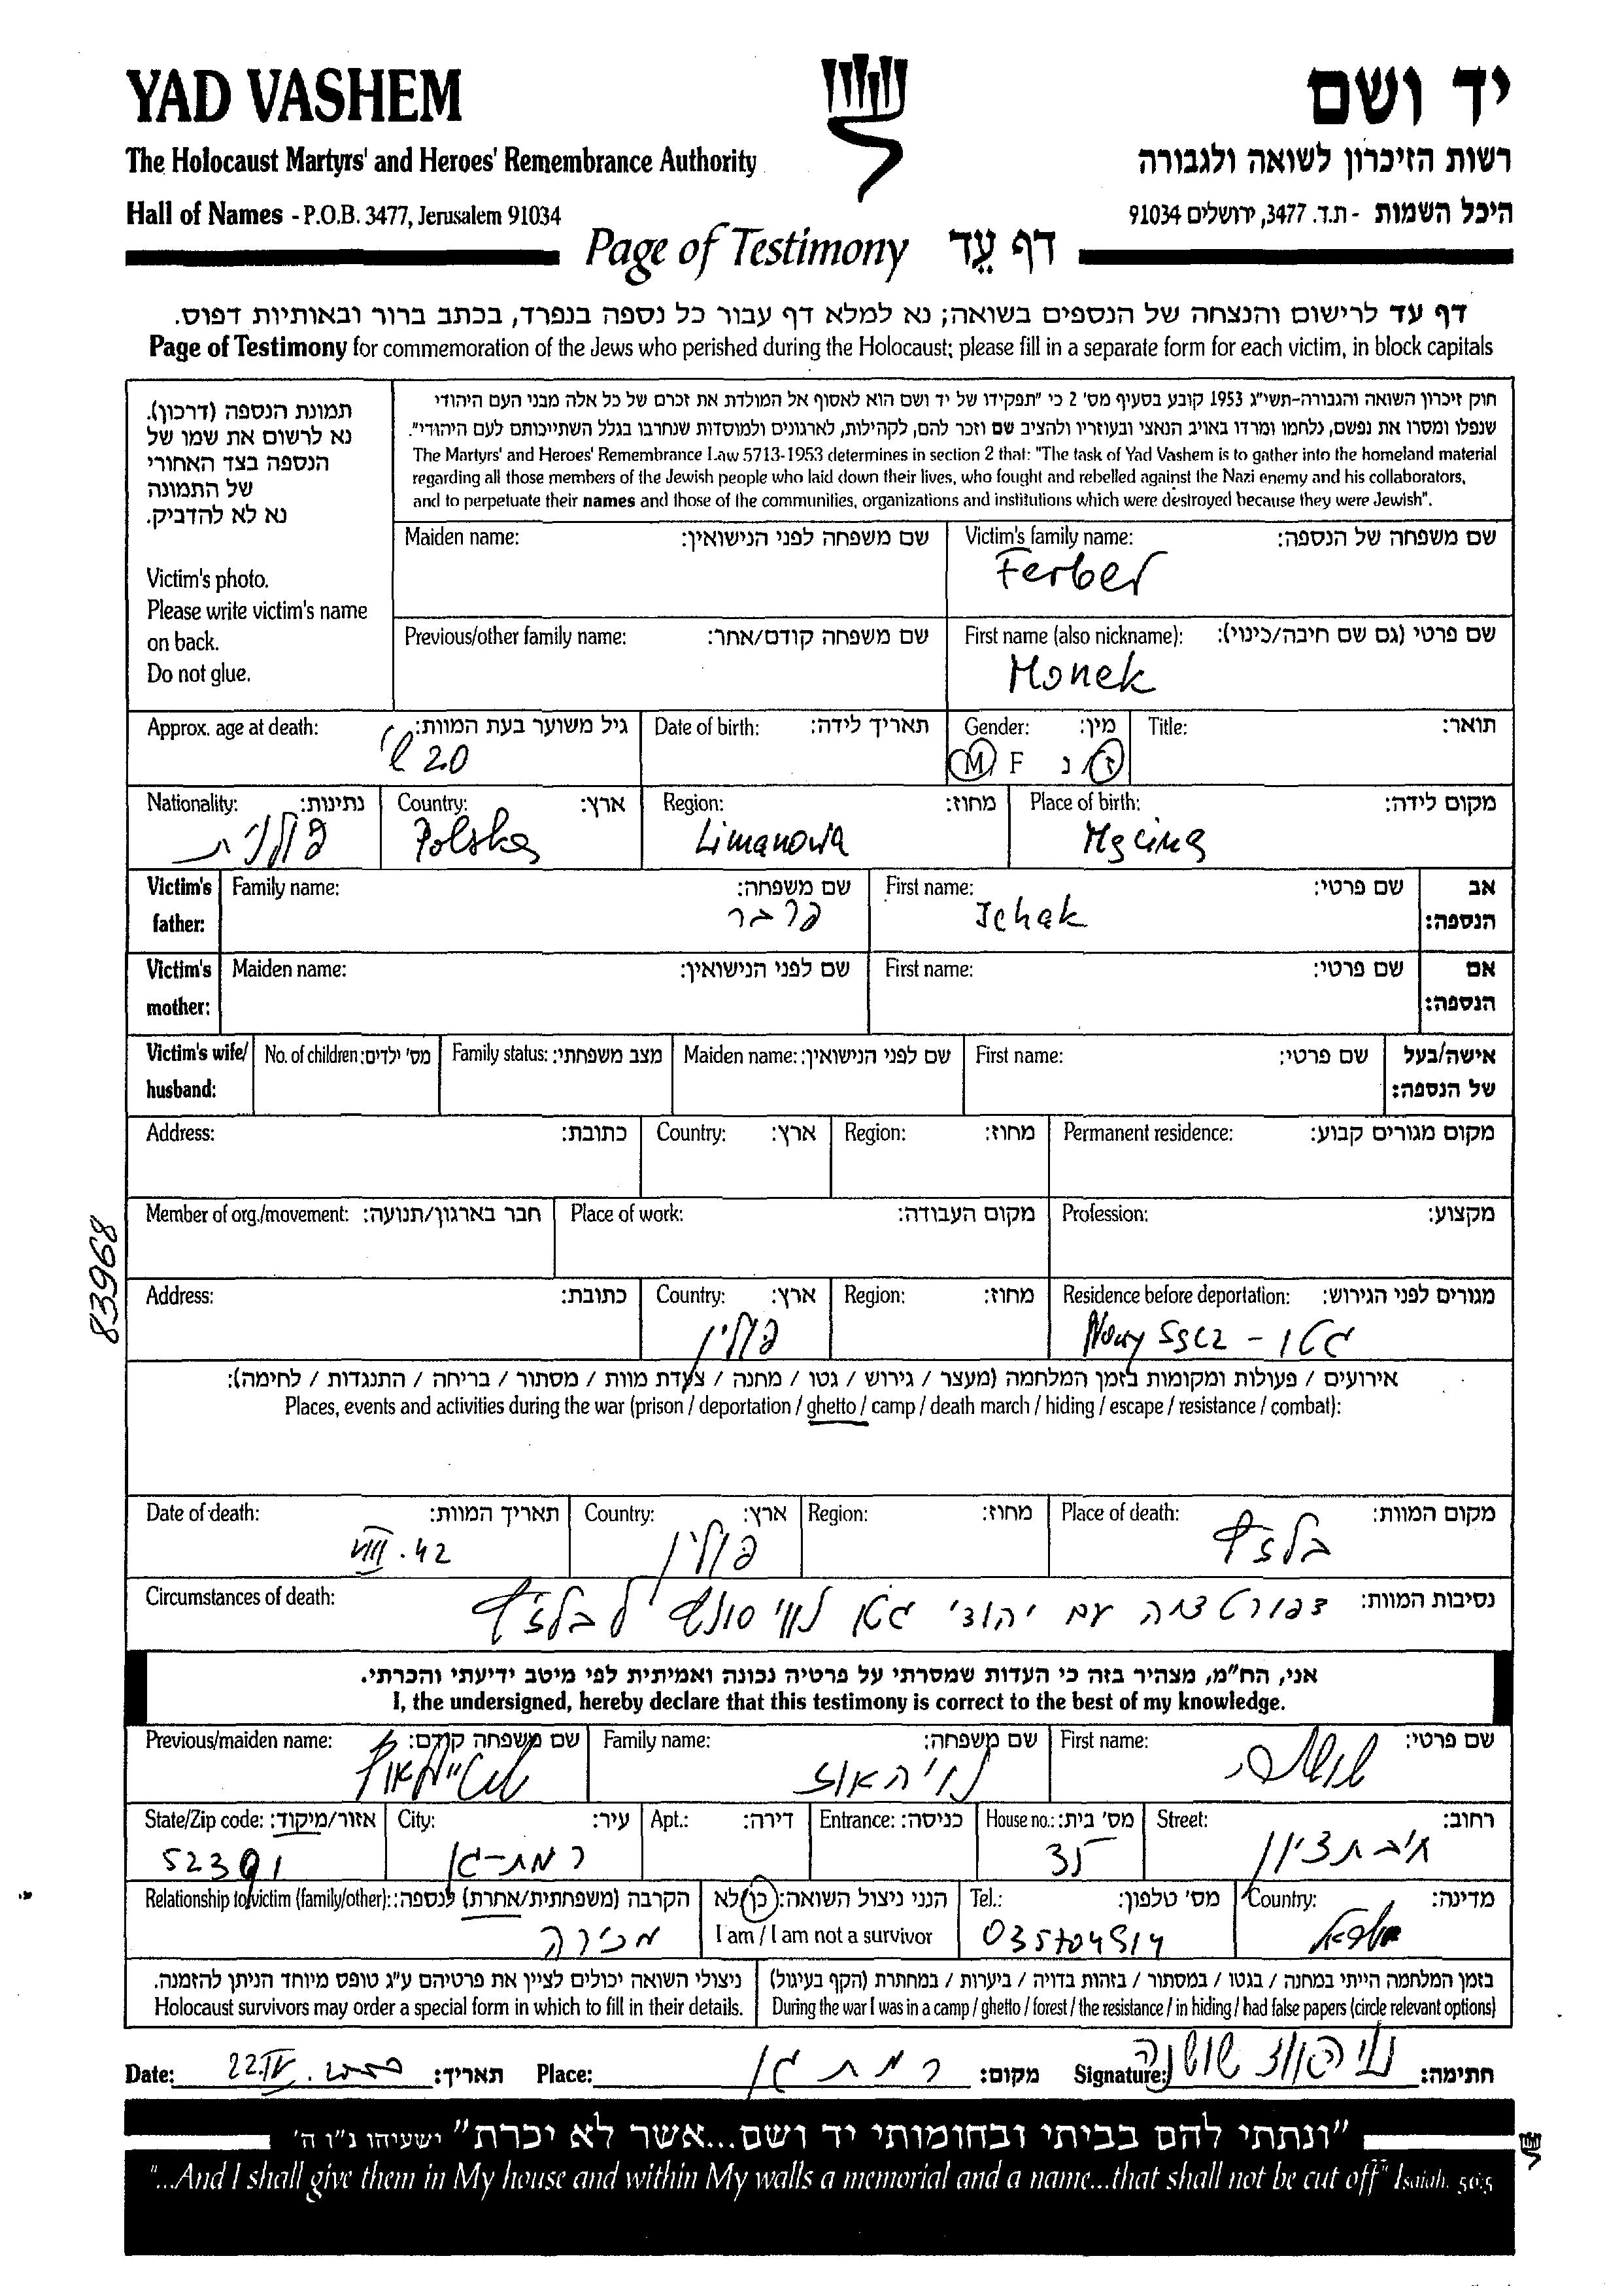 YAD VASHEM
יד ושם
The Holocaust Martyrs' and Heroes' Remembrance Authority
רשות הזיכרון לשואה ולגבורה
Hall of Names - P.O.B. 3477, Jerusalem 91034
היכל השמות - ת.ד. 3477, ירושלים 91034
Page of Testimony דף עֵד
דף עד לרישום והנצחה של הנספים בשואה; נא למלא דף עבור כל נספה בנפרד, בכתב ברור ובאותיות דפוס.
Page of Testimony for commemoration of the Jews who perished during the Holocaust; please fill in a separate form for each victim, in block capitals
תמונת הנספה (דרכון).
נא לרשום את שמו של
הנספה בצד האחורי
של התמונה
נא לא להדביק.
Victim's photo.
Please write victim's name
on back.
Do not glue.
חוק זיכרון השואה והגבורה-תשי"ג 1953 קובע בסעיף מס' 2 כי "תפקידו של יד ושם הוא לאסוף אל המולדת את זכרם של כל אלה מבני העם היהודי
שנפלו ומסרו את נפשם, נלחמו ומרדו באויב הנאצי ובעוזריו ולהציב שם וזכר להם, לקהילות, לארגונים ולמוסדות שנחרבו בגלל השתייכותם לעם היהודי".
The Martyrs' and Heroes' Remembrance Law 5713-1953 determines in section 2 that: "The task of Yad Vashem is to gather into the homeland material
regarding all those members of the Jewish people who laid down their lives, who fought and rebelled against the Nazi enemy and his collaborators,
and to perpetuate their names and those of the communities, organizations and institutions which were destroyed because they were Jewish".
Maiden name: שם משפחה לפני הנישואין:
Victim's family name: שם משפחה של הנספה:
Ferber
Previous/other family name: שם משפחה קודם/אחר:
First name (also nickname): שם פרטי (גם שם חיבה/כינוי):
Monek
Approx. age at death: גיל משוער בעת המוות:
20
Date of birth: תאריך לידה:
Gender: מין:
M F ז / נ
Title: תואר:
Nationality: נתינות:
פולנית
Country: ארץ:
Polska
Region: מחוז:
Limanowa
Place of birth: מקום לידה:
Męcina
Victim's father: Family name: שם משפחה:
פרבר
First name: שם פרטי:
Ichak
אב הנספה:
Victim's mother: Maiden name: שם לפני הנישואין:
First name: שם פרטי:
אם הנספה:
Victim's wife/ husband: No. of children: מס' ילדים:
Family status: מצב משפחתי:
Maiden name: שם לפני הנישואין:
First name: שם פרטי:
אישה/בעל של הנספה:
Address: כתובת:
Country: ארץ:
Region: מחוז:
Permanent residence: מקום מגורים קבוע:
Member of org./movement: חבר בארגון/תנועה:
Place of work: מקום העבודה:
Profession: מקצוע:
83968
Address: כתובת:
Country: ארץ:
פולין
Region: מחוז:
Residence before deportation: מגורים לפני הגירוש:
Nowy Sącz - גטו
אירועים / פעולות ומקומות בזמן המלחמה (מעצר / גירוש / גטו / מחנה / צעדת מוות / מסתור / בריחה / התנגדות / לחימה):
Places, events and activities during the war (prison / deportation / ghetto / camp / death march / hiding / escape / resistance / combat):
Date of death: תאריך המוות:
VIII.42
Country: ארץ:
פולין
Region: מחוז:
Place of death: מקום המוות:
בלז'ץ
Circumstances of death: נסיבות המוות:
דפורטציה עם יהודי גטו נובי סונץ לבלז'ץ
אני, הח"מ, מצהיר בזה כי העדות שמסרתי על פרטיה נכונה ואמיתית לפי מיטב ידיעתי והכרתי.
I, the undersigned, hereby declare that this testimony is correct to the best of my knowledge.
Previous/maiden name: שם משפחה קודם:
Family name: שם משפחה:
נויהאוז
First name: שם פרטי:
State/Zip code: אזור/מיקוד:
52391
City: עיר:
רמת-גן
Apt.: דירה:
Entrance: כניסה:
House no.: מס' בית:
35
Street: רחוב:
חיבת ציון
Relationship to victim (family/other): הקרבה (משפחתית/אחרת) לנספה:
מכירה
הנני ניצול השואה: כן/לא
I am / I am not a survivor
Tel.: מס' טלפון:
035704914
Country: מדינה:
ישראל
ניצולי השואה יכולים לציין את פרטיהם ע"ג טופס מיוחד הניתן להזמנה.
Holocaust survivors may order a special form in which to fill in their details.
בזמן המלחמה הייתי במחנה / בגטו / במסתור / בזהות בדויה / ביערות / במחתרת (הקף בעיגול)
During the war I was in a camp / ghetto / forest / the resistance / in hiding / had false papers (circle relevant options)
Date: 22.IV.2000 תאריך:
Place: רמת גן מקום:
Signature: נויהאוז שושנה חתימה:
"ונתתי להם בביתי ובחומותי יד ושם...אשר לא יכרת" ישעיהו נ"ו ה'
"...And I shall give them in My house and within My walls a memorial and a name...that shall not be cut off" Isaiah. 56:5